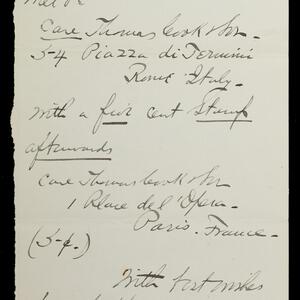 Care Thomas Cook & Son -
5-4 Piazza di Termini
Rome Italy -
with a five cent Stamp
afterwards
Care Thomas Cook & Son
1 Place de l'Opera -
Paris. France -
(5¢.)
With best wishes